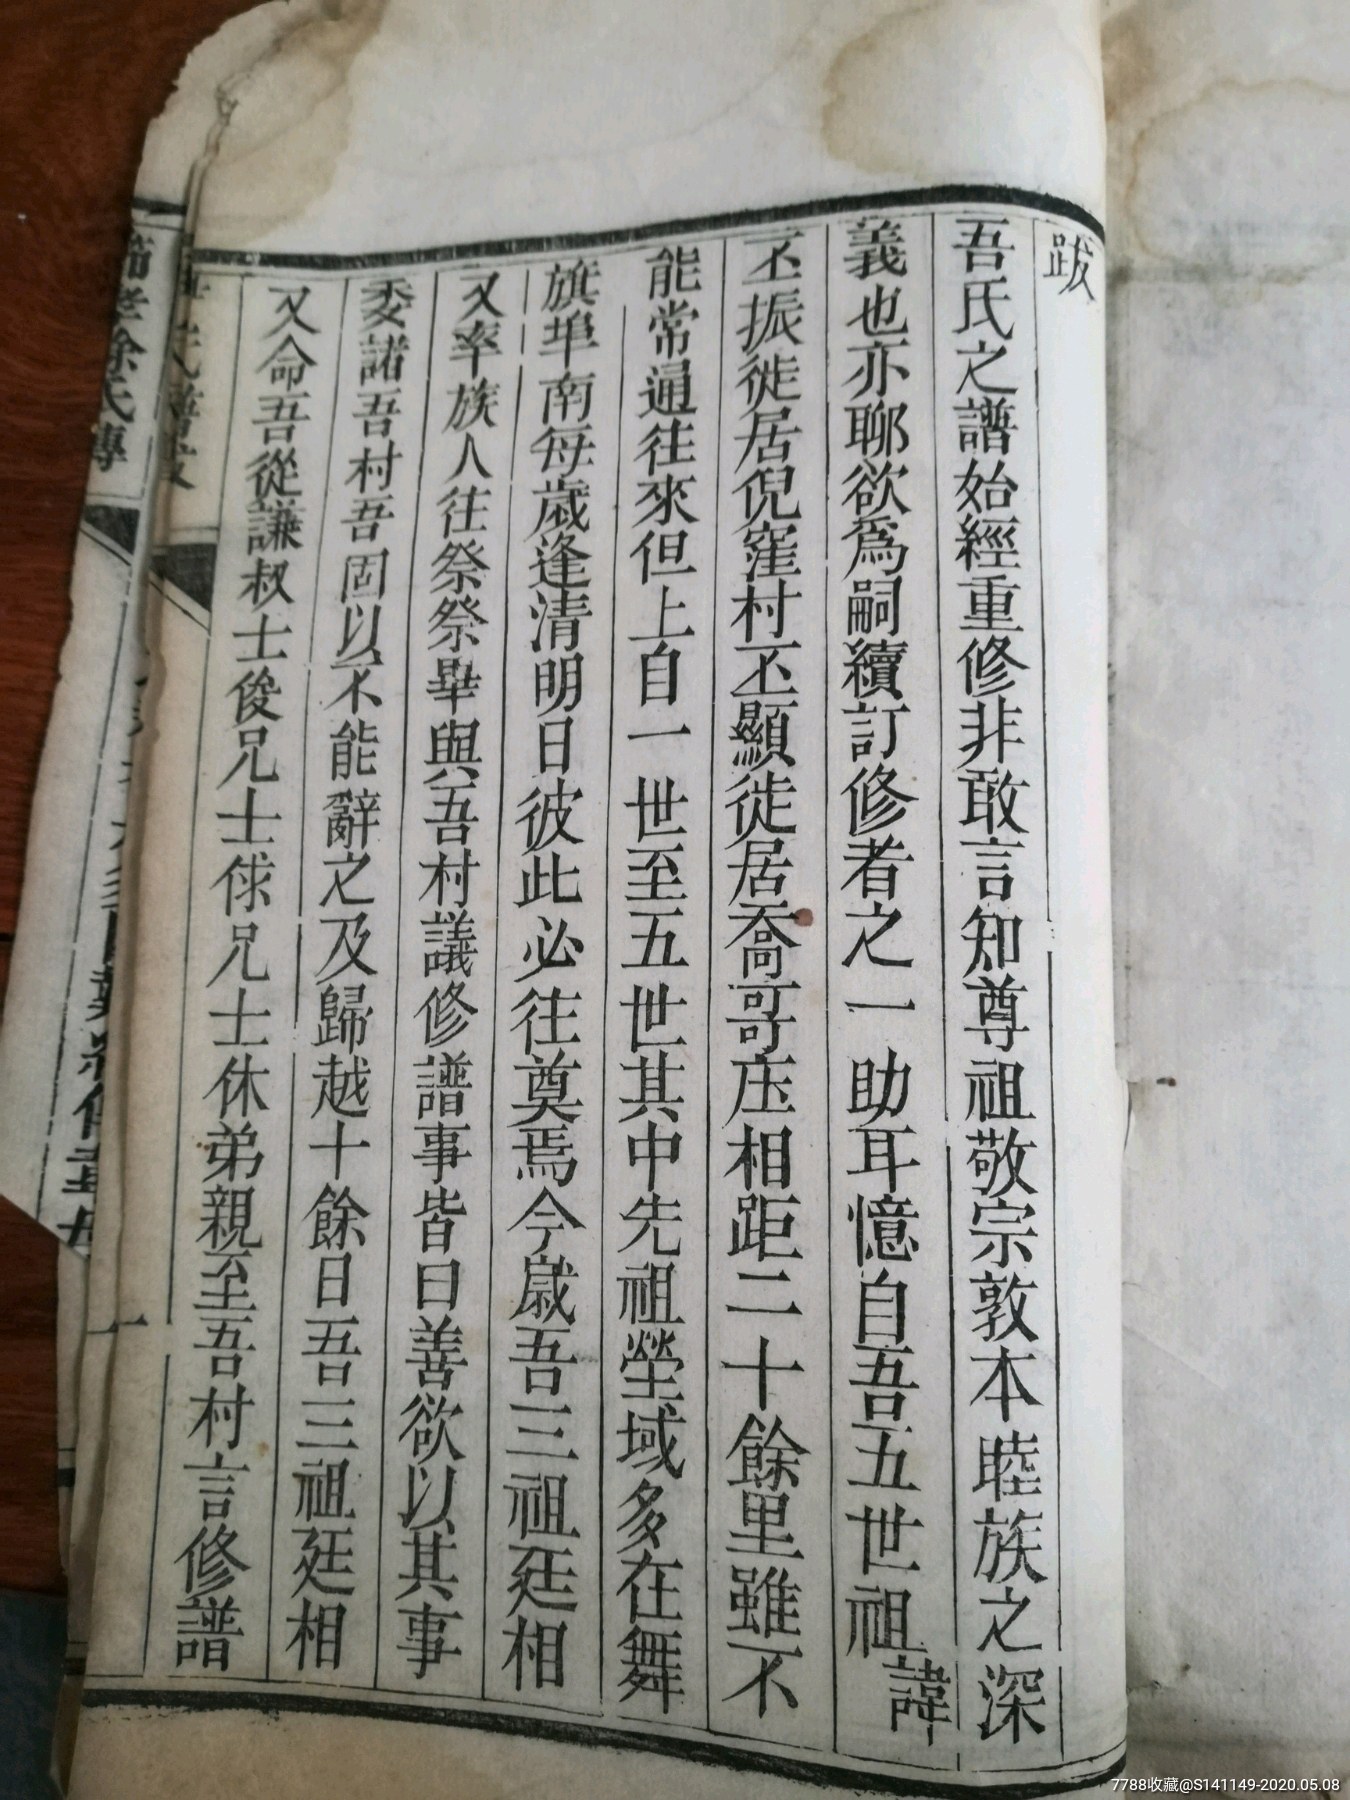 跋
吾氏之譜始經重修非敢言知尊祖敬宗敦本睦族之深
義也亦聊欲爲嗣續訂修者之一助耳憶自吾五世祖諱
丕振徙居倪窪村丕顯徙居喬哥庄相距二十餘里雖不
能常通往來但上自一世至五世其中先祖塋域多在舞
旗埠南每歲逢清明日彼此必往奠焉今歲吾三祖廷相
又率族人往祭祭畢與吾村議修譜事皆曰善欲以其事
委諸吾村吾固以不能辭之及歸越十餘日吾三祖廷相
又命吾從謙叔士俊兄士俅兄士休弟親至吾村言修譜
氏譜跋
節孝徐氏傳
一
7788收藏@S141149-2020.05.08